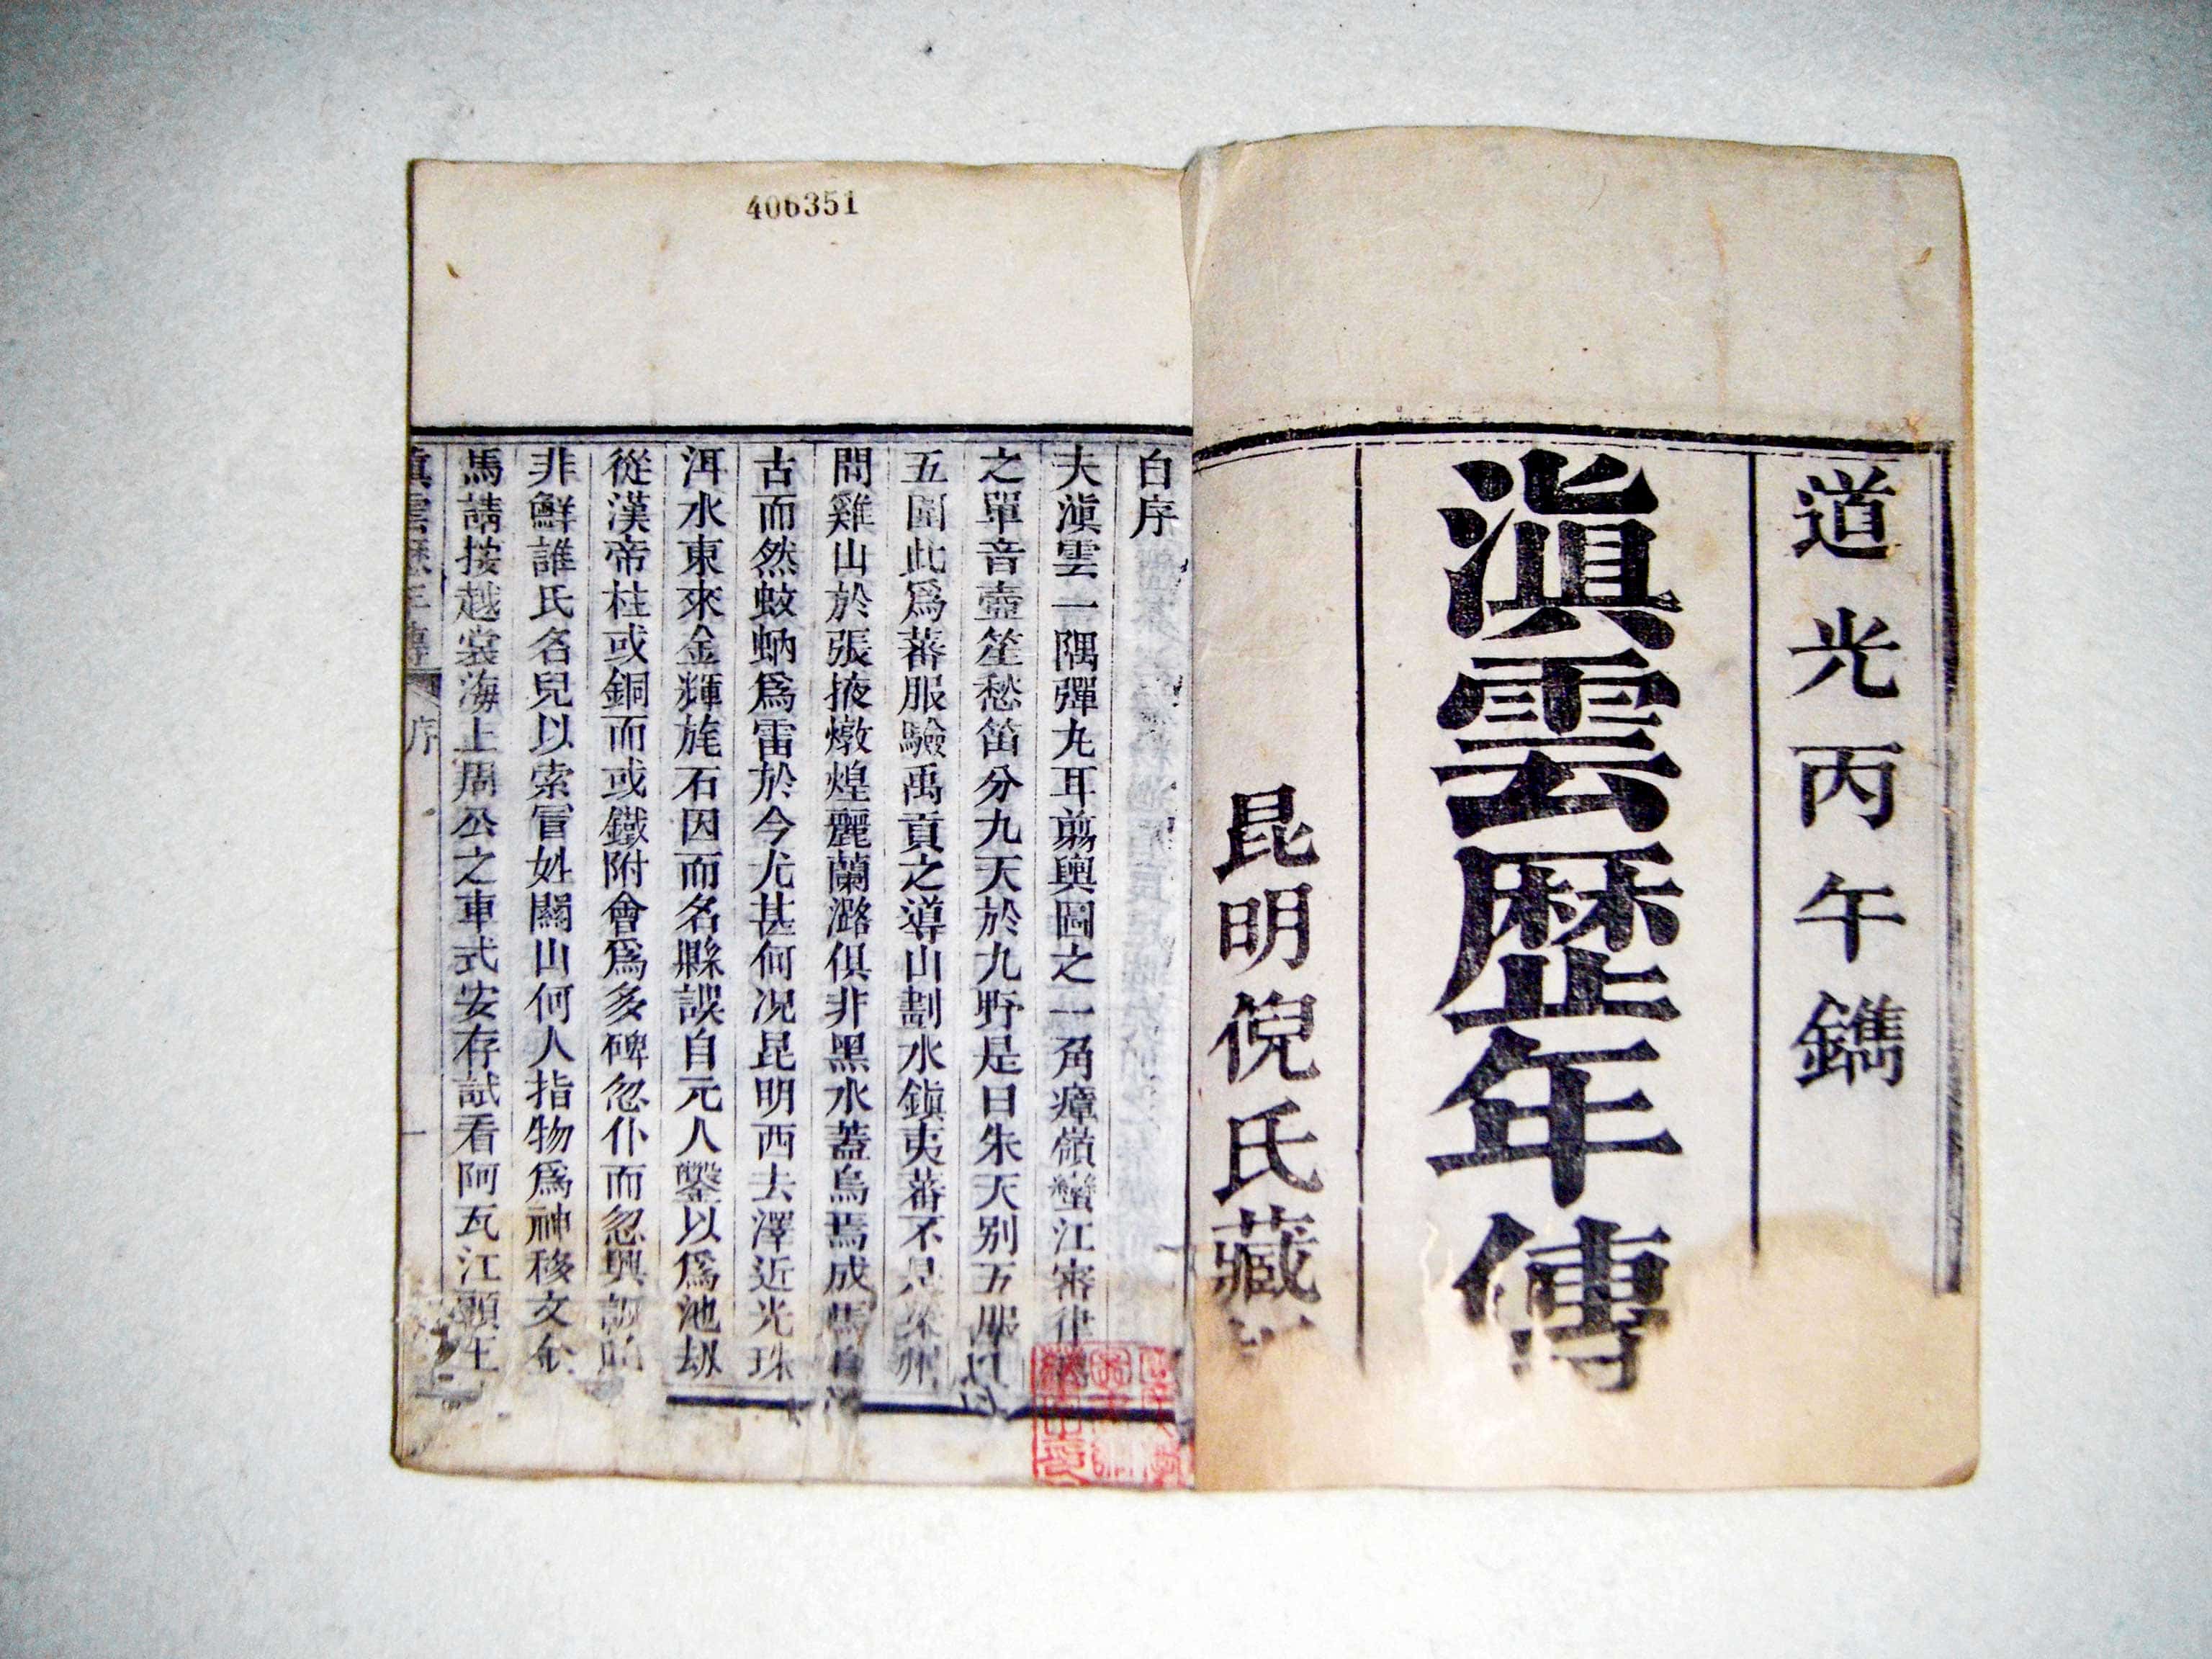 道光丙午鐫
滇雲歷年傳
昆明倪氏藏
406351
自序
夫滇雲一隅彈丸耳剪輿圖之一角瘴嶺蠻江審律
之單音壺笙愁笛分九天於九野是曰朱天別五服以
五圻此爲蕃服驗禹貢之導山劃水鎮夷蕃不是梁州
問雞山於張掖燉煌麗蘭潞俱非黑水蓋烏焉成馬自
古而然蚊蚋爲雷於今尤甚何况昆明西去澤近光珠
洱水東來金輝旄石因而名縣誤自元人鑿以爲池刼
從漢帝柱或銅而或鐵附會爲多碑忽仆而忽興
非鮮誰氏名兒以索冒姓關山何人指物爲神移文
馬請按越裳海上周公之車式安存試看阿瓦江頭王
滇雲歷年傳
序
一